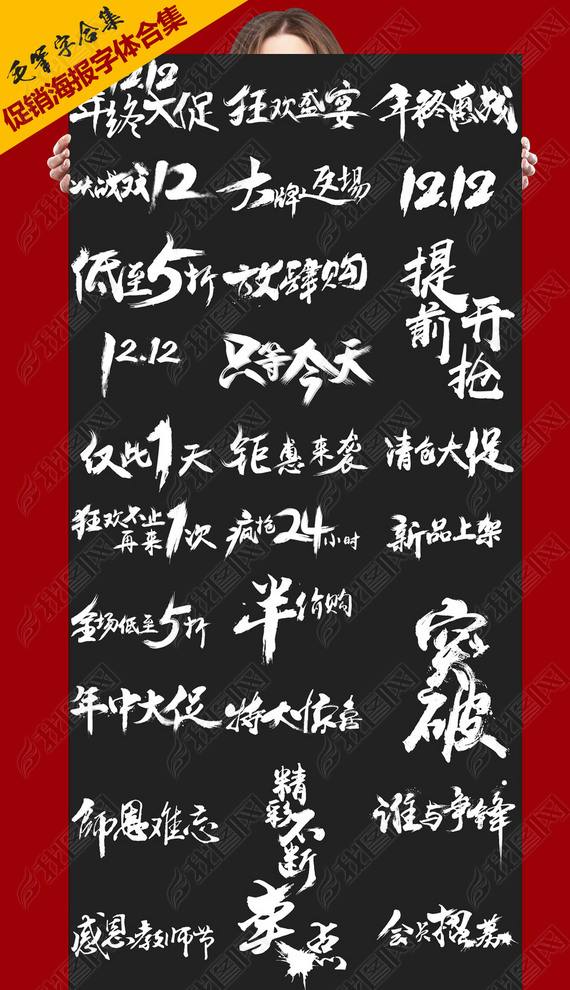 毛笔字合集
促销海报字体合集
12.12
年终大促
狂欢盛宴
年终惠战
决战双12
大牌返场
12.12
低至5折
放肆购
提前开抢
12.12
只等今天
仅此1天
钜惠来袭
清仓大促
狂欢不止
再来1次
疯抢24小时
新品上架
全场低至5折
半价购
突破
年中大促
特大惊喜
师恩难忘
精彩不断
谁与争锋
感恩教师节
卖点
会员招募